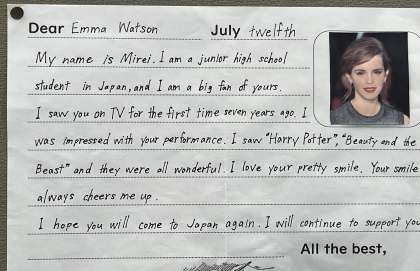 Dear Emma Watson July twelfth
My name is Mirei. I am a junior high school
student in Japan, and I am a big fan of yours.
I saw you on TV for the first time seven years ago. I
was impressed with your performance. I saw "Harry Potter", "Beauty and the
Beast" and they were all wonderful. I love your pretty smile. Your smile
always cheers me up.
I hope you will come to Japan again. I will continue to support you
All the best,